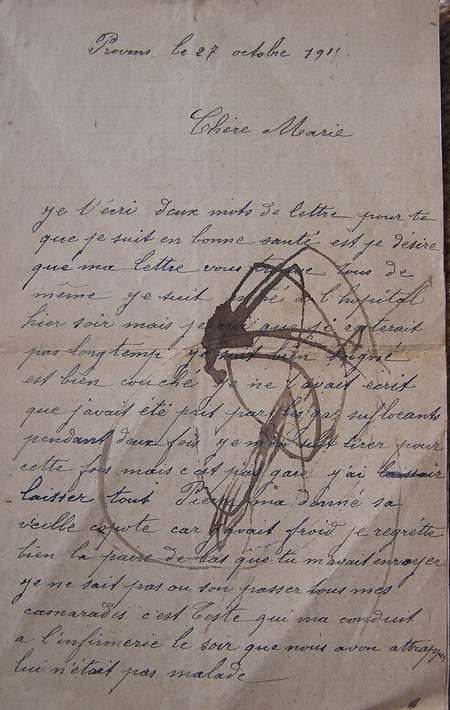 Provins le 27 octobre 191
Chère Marie
je t'écri deux mots de lettre pour te
que je suit en bonne santé est je désire
que ma lettre vous trouve tous de
même je suit à l'hopital
hier soir mais je que j'i resterait
pas longtemp je suit bien soigné
est bien couche je ne t'avait ecrit
que j'avait été prit par les gaz suffocants
pendant deux fois je m'en suit tirer pour
cette fois mais c'est pas gaie j'ai
laisser tout ma donné sa
veille capote car j'avait froid je regrette
bien la paire de bas que tu m'avait envoyer
je ne sait pas ou son passer tous mes
camarades c'est Toste qui ma conduit
a l'infirmerie le soir que nous avon attrapper
lui n'était pas malade